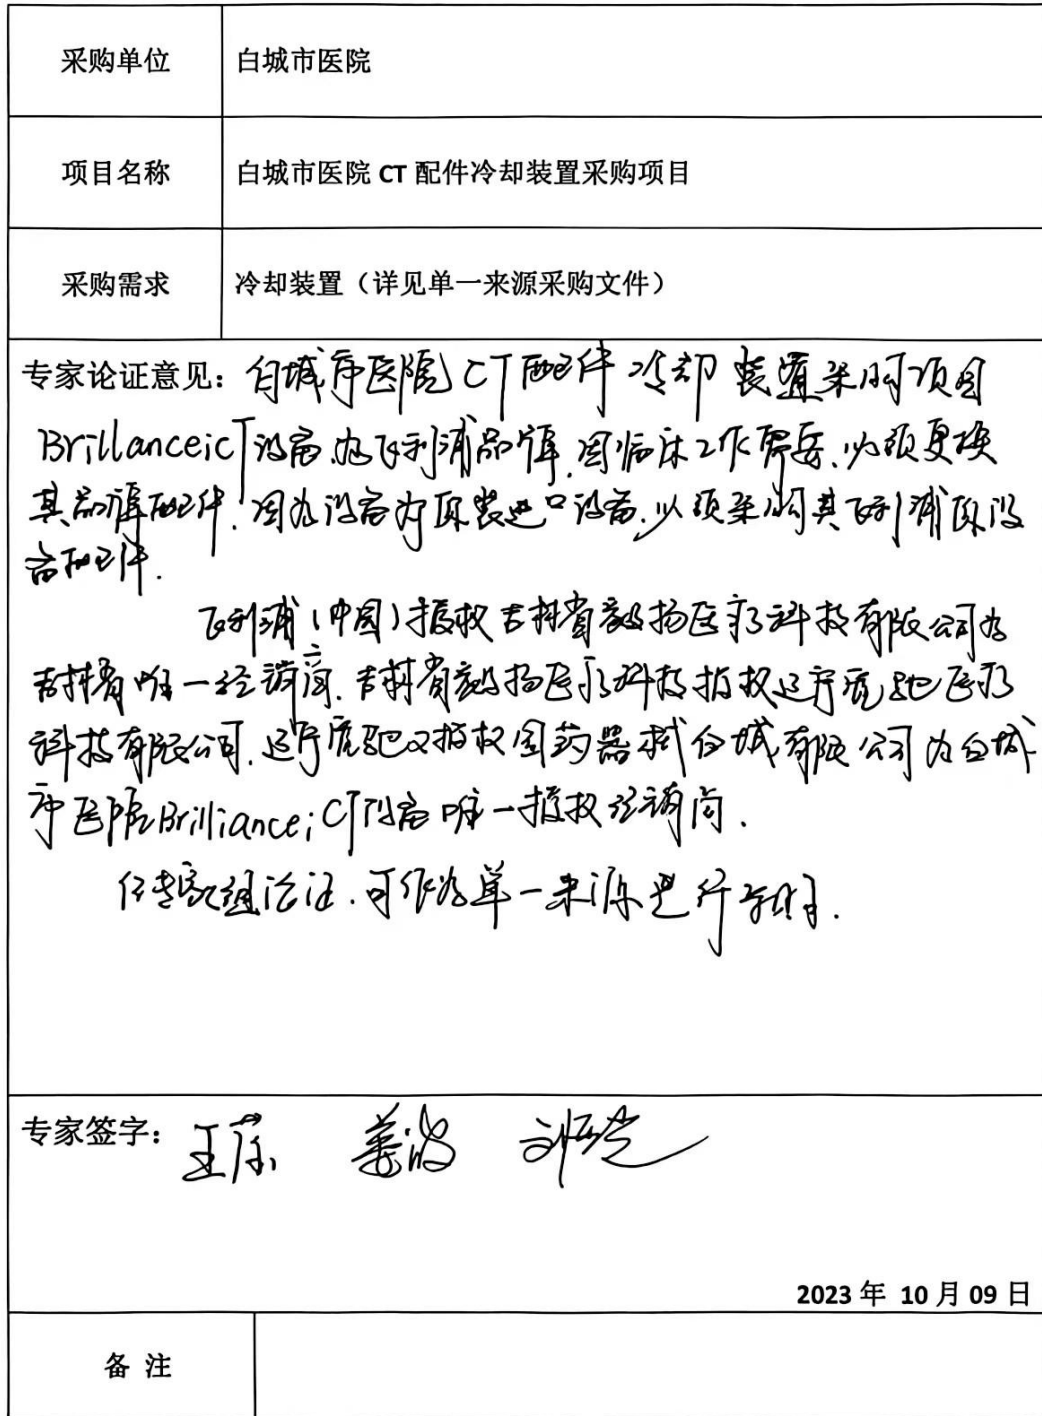 采购单位
白城市医院
项目名称
白城市医院 CT 配件冷却装置采购项目
采购需求
冷却装置（详见单一来源采购文件）
专家论证意见：白城市医院CT配件冷却装置采购项目
BrillanceicT设备为飞利浦品牌.因临床工作需要.必须更换
其品牌配件.因为设备为原装进口设备.必须采购其飞利浦原设
备配件.
飞利浦(中国)授权吉林省毅扬医疗科技有限公司为
吉林省唯一经销商.吉林省毅扬医疗科技授权辽宁 驰医疗
科技有限公司.辽宁 驰又授权国药器械白城有限公司为白城
市医院BrilianceiCT设备唯一授权经销商.
经专家组论证.可作为单一来源进行采购.
专家签字：
2023 年 10 月 09 日
备 注